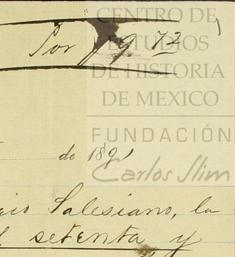 CENTRO DE
ESTUDIOS
DE HISTORIA
DE MEXICO
FUNDACIÓN
Carlos Slim
Por $ 9. 73
de 189
gio Salesiano, la
setenta y